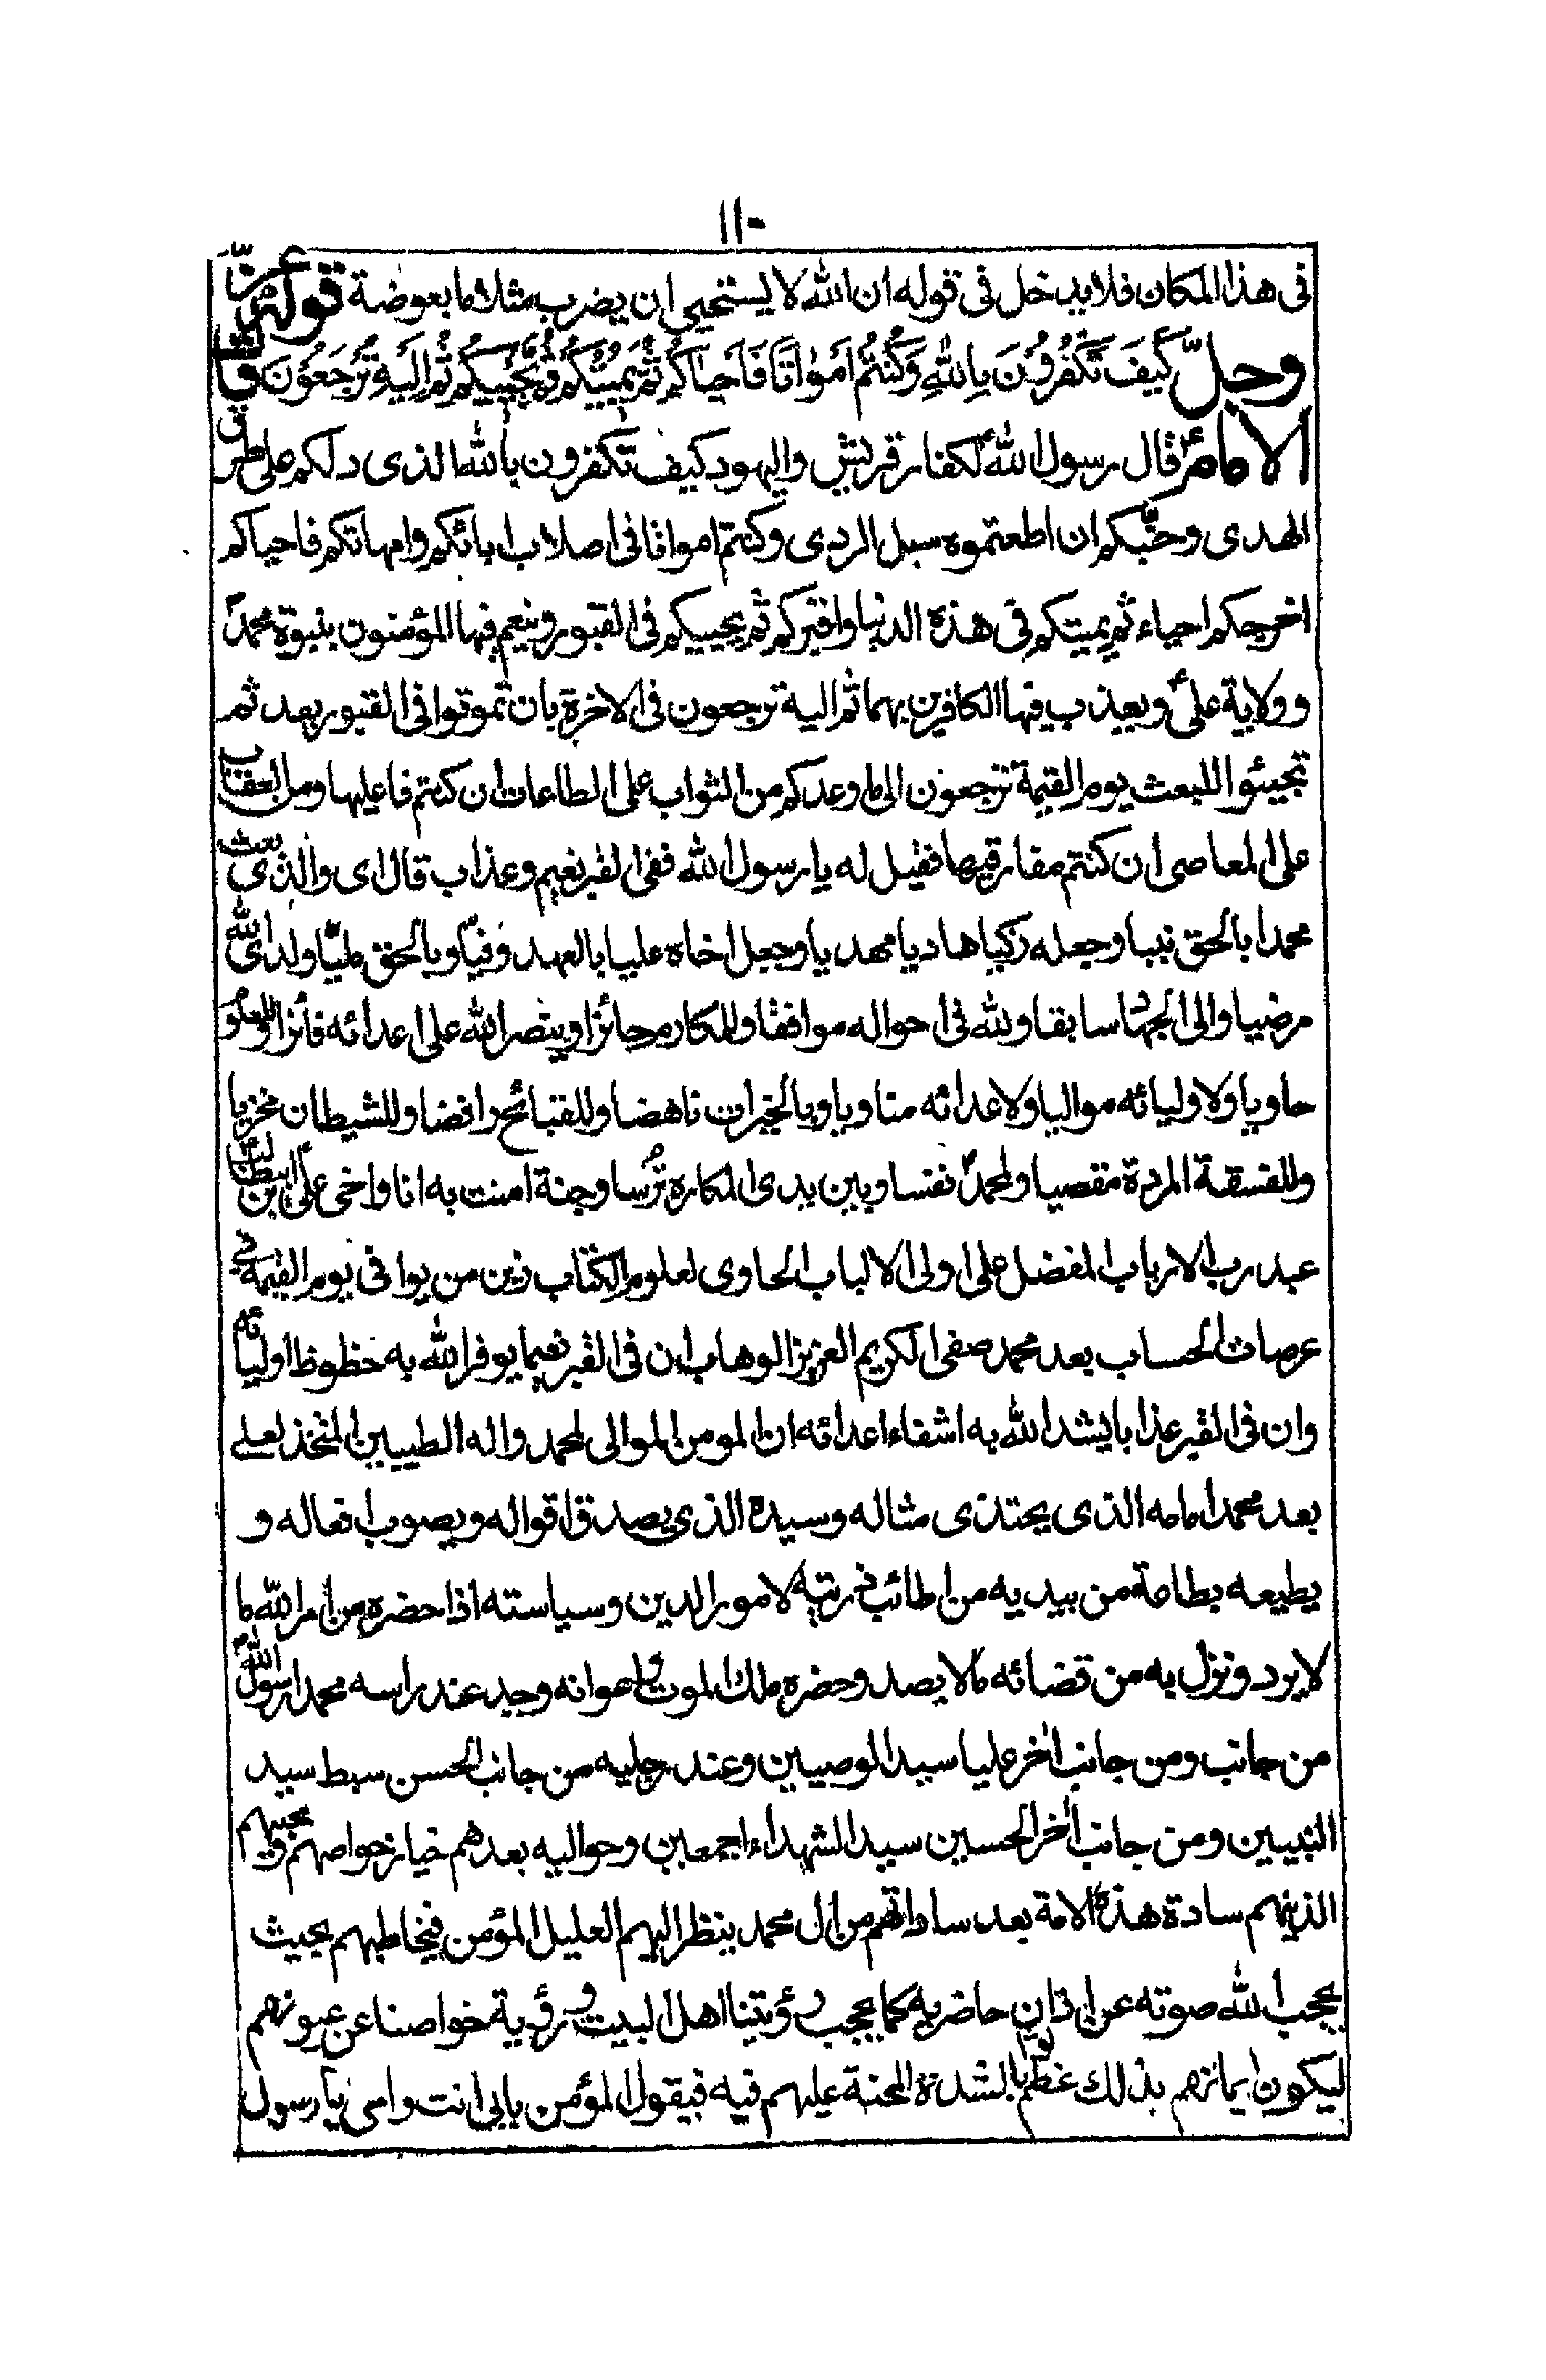 ١١٠
فى هذا المكان فلا يدخل فى قوله ان الله لا يستحيى ان يضرب مثلا ما بعوضة قوله عزّ
وجلّ كَيفَ تَكْفُرُوُنَ بِاللهِ وَكُنْتُم اَموٰاتًا فَاَحيٰاكُم ثُمَّ يُميتُكُم ثُمَّ يُحْييكُم ثُمَّ اِلَيهِ تُرجَعُوُنَ قال
الامامؑ قال رسول اللهؐ لكفار قريش واليهود كيف تكفرون بالله الذى دلكم على طرق
الهدى وجنّبكم ان اطعتموه سبل الردى وكنتم امواتا فى اصلاب ابائكم وارحام امهاتكم فاحياكم
اخرجكم احياء ثم يميتكم فى هذه الدنيا واقبركم ثم يحييكم فى القبور وينعم فيها المؤمنون بنبوة محمدؐ
وولاية علىؑ ويعذب فيها الكافرين بهما ثم اليه ترجعون فى الاخرة بان تموتوا فى القبور بعد ثم
تجيئوا للبعث يوم القيمة ترجعون الى ما وعدكم من الثواب على الطاعات ان كنتم فاعليها ومن العقاب
على المعاصى ان كنتم مقارفيها فقيل له يا رسول الله ففى القبر نعيم وعذاب قال اى والذى بعث
محمدا بالحق نبيا وجعله زكيا هاديا مهديا وجعل اخاه عليا بالعهد وفيّا وبالحق مليّا ولدى الله
مرضيا والى الجهاد سابقا ولله فى احواله موافقا وللمكارم حائزا وبنصر الله على اعدائه فائزا وللعلوم
حاويا ولاوليائه مواليا ولاعدائه مناويا وبالخيرات ناهضا وللقبائح رافضا وللشيطان مخزيا
وللفسقة المردة مقصيا ولمحمدؐ نفسا وبين يدى المكاره تُرسا وجنة امنت به انا واخى علىؑ بن ابيطالب
عبد رب الارباب المفضل على اولى الالباب الحاوى لعلوم الكتاب زين من يوافى يوم القيمة فى
عرصات الحساب بعد محمد صفى الكريم العزيز الوهاب ان فى القبر نعيما يوفر الله به حظوظ اوليائه
وان فى القبر عذابا يشد الله به اشقاء اعدائه ان المومن الموالى لمحمد واله الطيبين المتخذ لعلى
بعد محمد امامه الذى يحتذى مثاله وسيده الذى يصدق اقواله ويصوب افعاله و
يطيعه بطاعة من يديه من اطائب ذريته لامور الدين وسياسته اذا حضره من امر الله ما
لا يرد ونزل به من قضائه ما لا يصد وحضره ملك الموت واعوانه وجد عند راسه محمدا رسول اللهؐ
من جانب ومن جانب اٰخر عليا سيد الوصيين وعند رجليه من جانب الحسن سبط سيد
النبيين ومن جانب اٰخر الحسين سيد الشهداء اجمعين وحواليه بعدهم خيار خواصهم ومحبيهم
الذينهم سادة هذه الامة بعد ساداتهم من ال محمد ينظر اليهم العليل المؤمن فيخاطبهم بحيث
يحجب الله صوته عن اذان حاضريه كما يحجب رؤيتنا اهل البيت ورؤية خواصنا عن عيونهم
ليكون ايمانهم بذلك اعظم ثوابا لشدة المحنة عليهم فيه فيقول المؤمن بابى انت وامى يا رسول